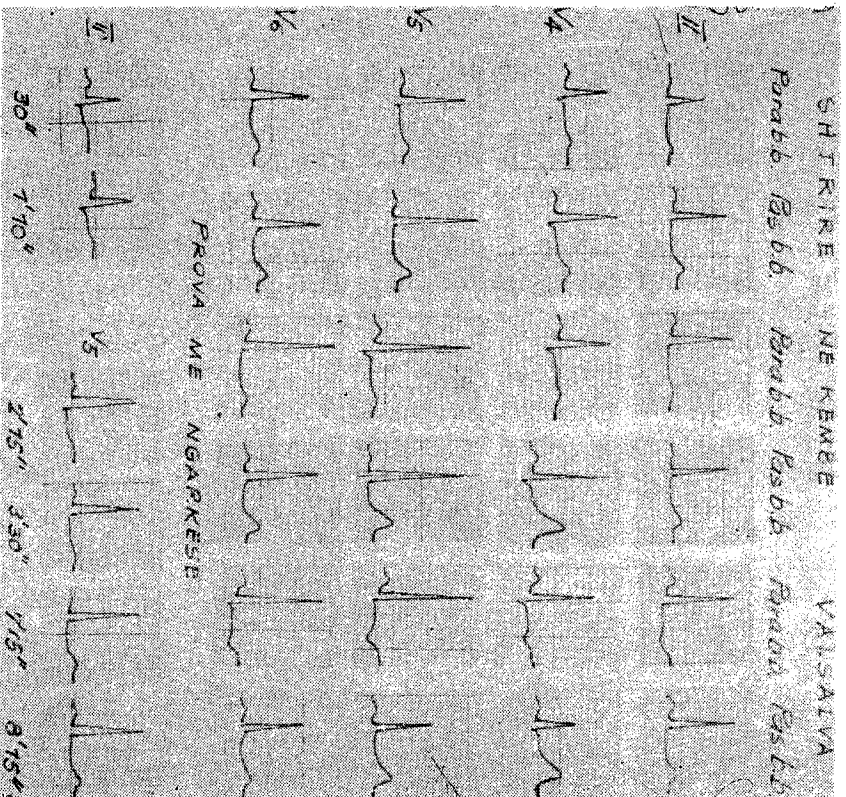 SHTRIRE NE KEMBE VALSALVA
Para b.b. Pas b.b. Para b.b Pas b.b Para b.b. Pas b.b
II
V4
V5
V6
PROVA ME NGARKESE
II V5
30" 1'10" 2'15" 3'30" 1'15" 8'15"